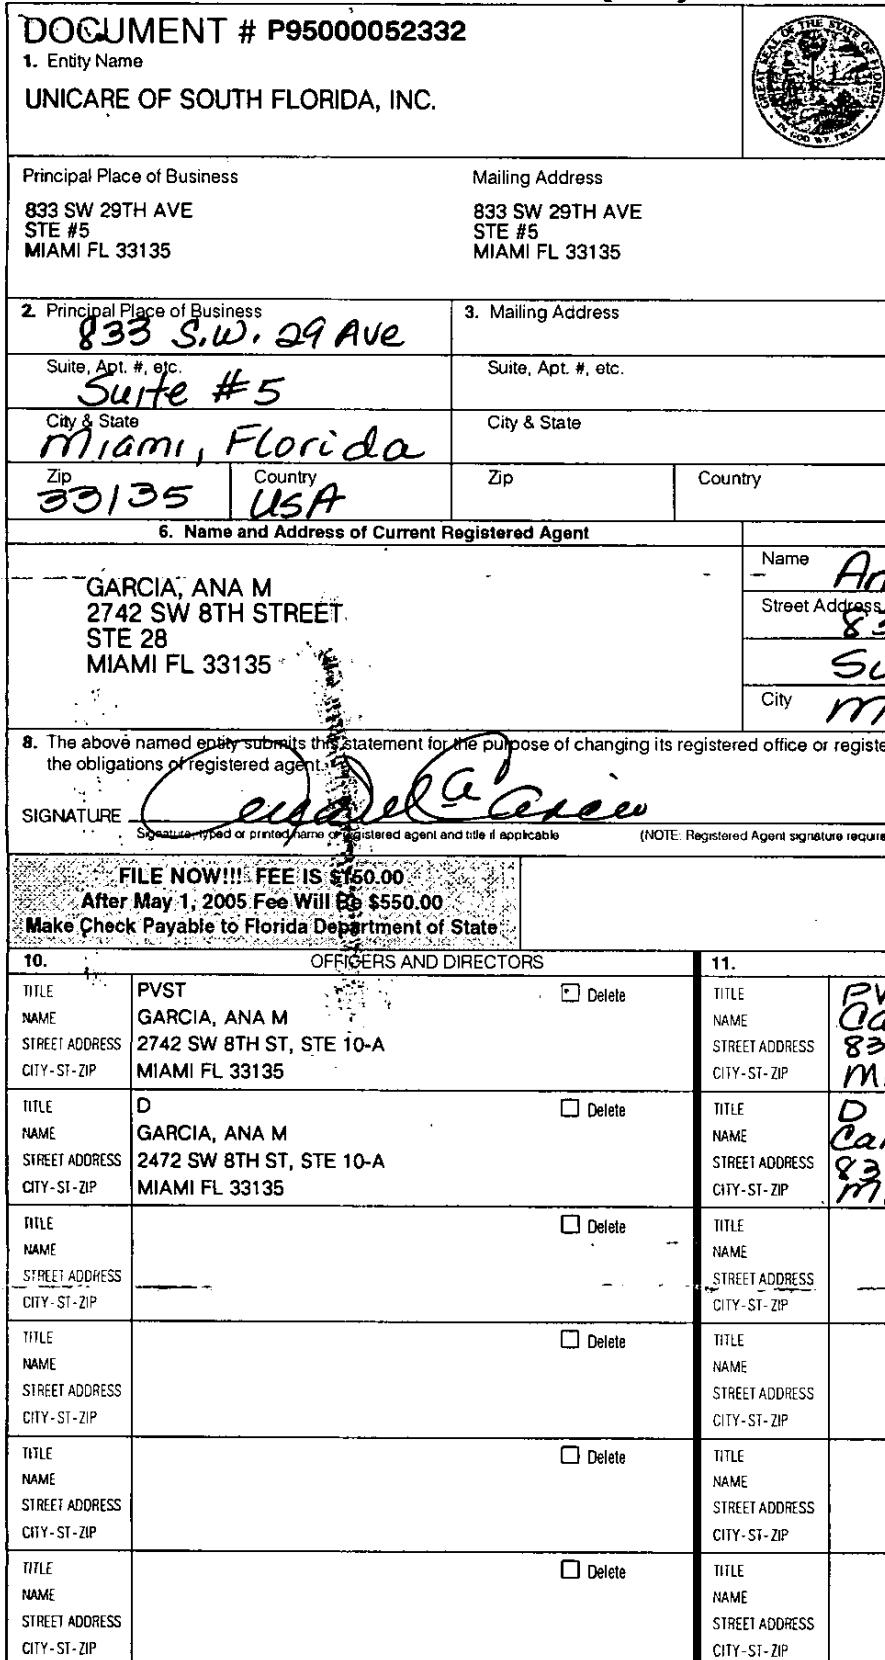 DOCUMENT # P95000052332
1. Entity Name
UNICARE OF SOUTH FLORIDA, INC.
GREAT SEAL OF THE STATE OF FLORIDA
IN GOD WE TRUST
Principal Place of Business
833 SW 29TH AVE
STE #5
MIAMI FL 33135
Mailing Address
833 SW 29TH AVE
STE #5
MIAMI FL 33135
2. Principal Place of Business
833 S.W. 29 Ave
3. Mailing Address
Suite, Apt. #, etc.
Suite #5
Suite, Apt. #, etc.
City & State
Miami, Florida
City & State
Zip
33135
Country
USA
Zip
Country
6. Name and Address of Current Registered Agent
GARCIA, ANA M
2742 SW 8TH STREET
STE 28
MIAMI FL 33135
Name
Street Address
83
Su
City
M
8. The above named entity submits this statement for the purpose of changing its registered office or registe
the obligations of registered agent.
SIGNATURE
Signature, typed or printed name of registered agent and title if applicable
(NOTE: Registered Agent signature require
FILE NOW!!! FEE IS $150.00
After May 1, 2005 Fee Will Be $550.00
Make Check Payable to Florida Department of State
10. OFFICERS AND DIRECTORS
11.
TITLE PVST Delete
NAME GARCIA, ANA M
STREET ADDRESS 2742 SW 8TH ST, STE 10-A
CITY-ST-ZIP MIAMI FL 33135
TITLE PV
NAME Ca
STREET ADDRESS 83
CITY-ST-ZIP M
TITLE D Delete
NAME GARCIA, ANA M
STREET ADDRESS 2472 SW 8TH ST, STE 10-A
CITY-ST-ZIP MIAMI FL 33135
TITLE D
NAME Ca
STREET ADDRESS 83
CITY-ST-ZIP M
TITLE Delete
NAME
STREET ADDRESS
CITY-ST-ZIP
TITLE
NAME
STREET ADDRESS
CITY-ST-ZIP
TITLE Delete
NAME
STREET ADDRESS
CITY-ST-ZIP
TITLE
NAME
STREET ADDRESS
CITY-ST-ZIP
TITLE Delete
NAME
STREET ADDRESS
CITY-ST-ZIP
TITLE
NAME
STREET ADDRESS
CITY-ST-ZIP
TITLE Delete
NAME
STREET ADDRESS
CITY-ST-ZIP
TITLE
NAME
STREET ADDRESS
CITY-ST-ZIP